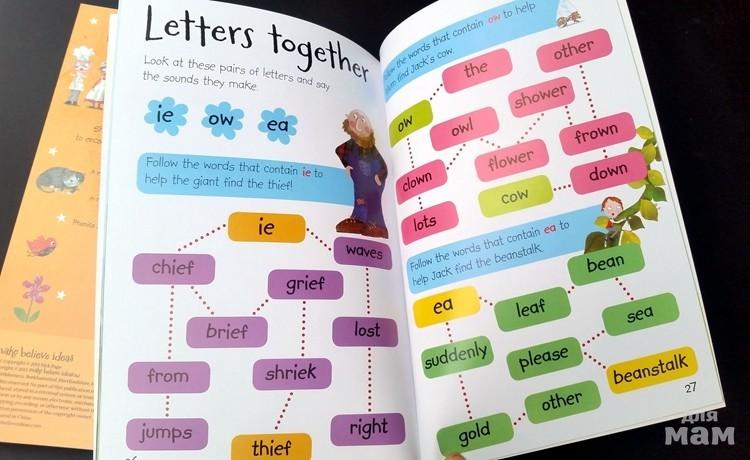 Letters together
Look at these pairs of letters and say
the sounds they make.
ie
ow
ea
Follow the words that contain ie to
help the giant find the thief!
ie
waves
chief
grief
brief
lost
from
shriek
jumps
thief
right
words that contain ow to help
find Jack's cow.
the
other
ow
shower
owl
frown
clown
flower
down
cow
lots
Follow the words that contain ea to
help Jack find the beanstalk.
bean
ea
leaf
sea
suddenly
please
beanstalk
other
gold
27
make believe ideas
для
мам